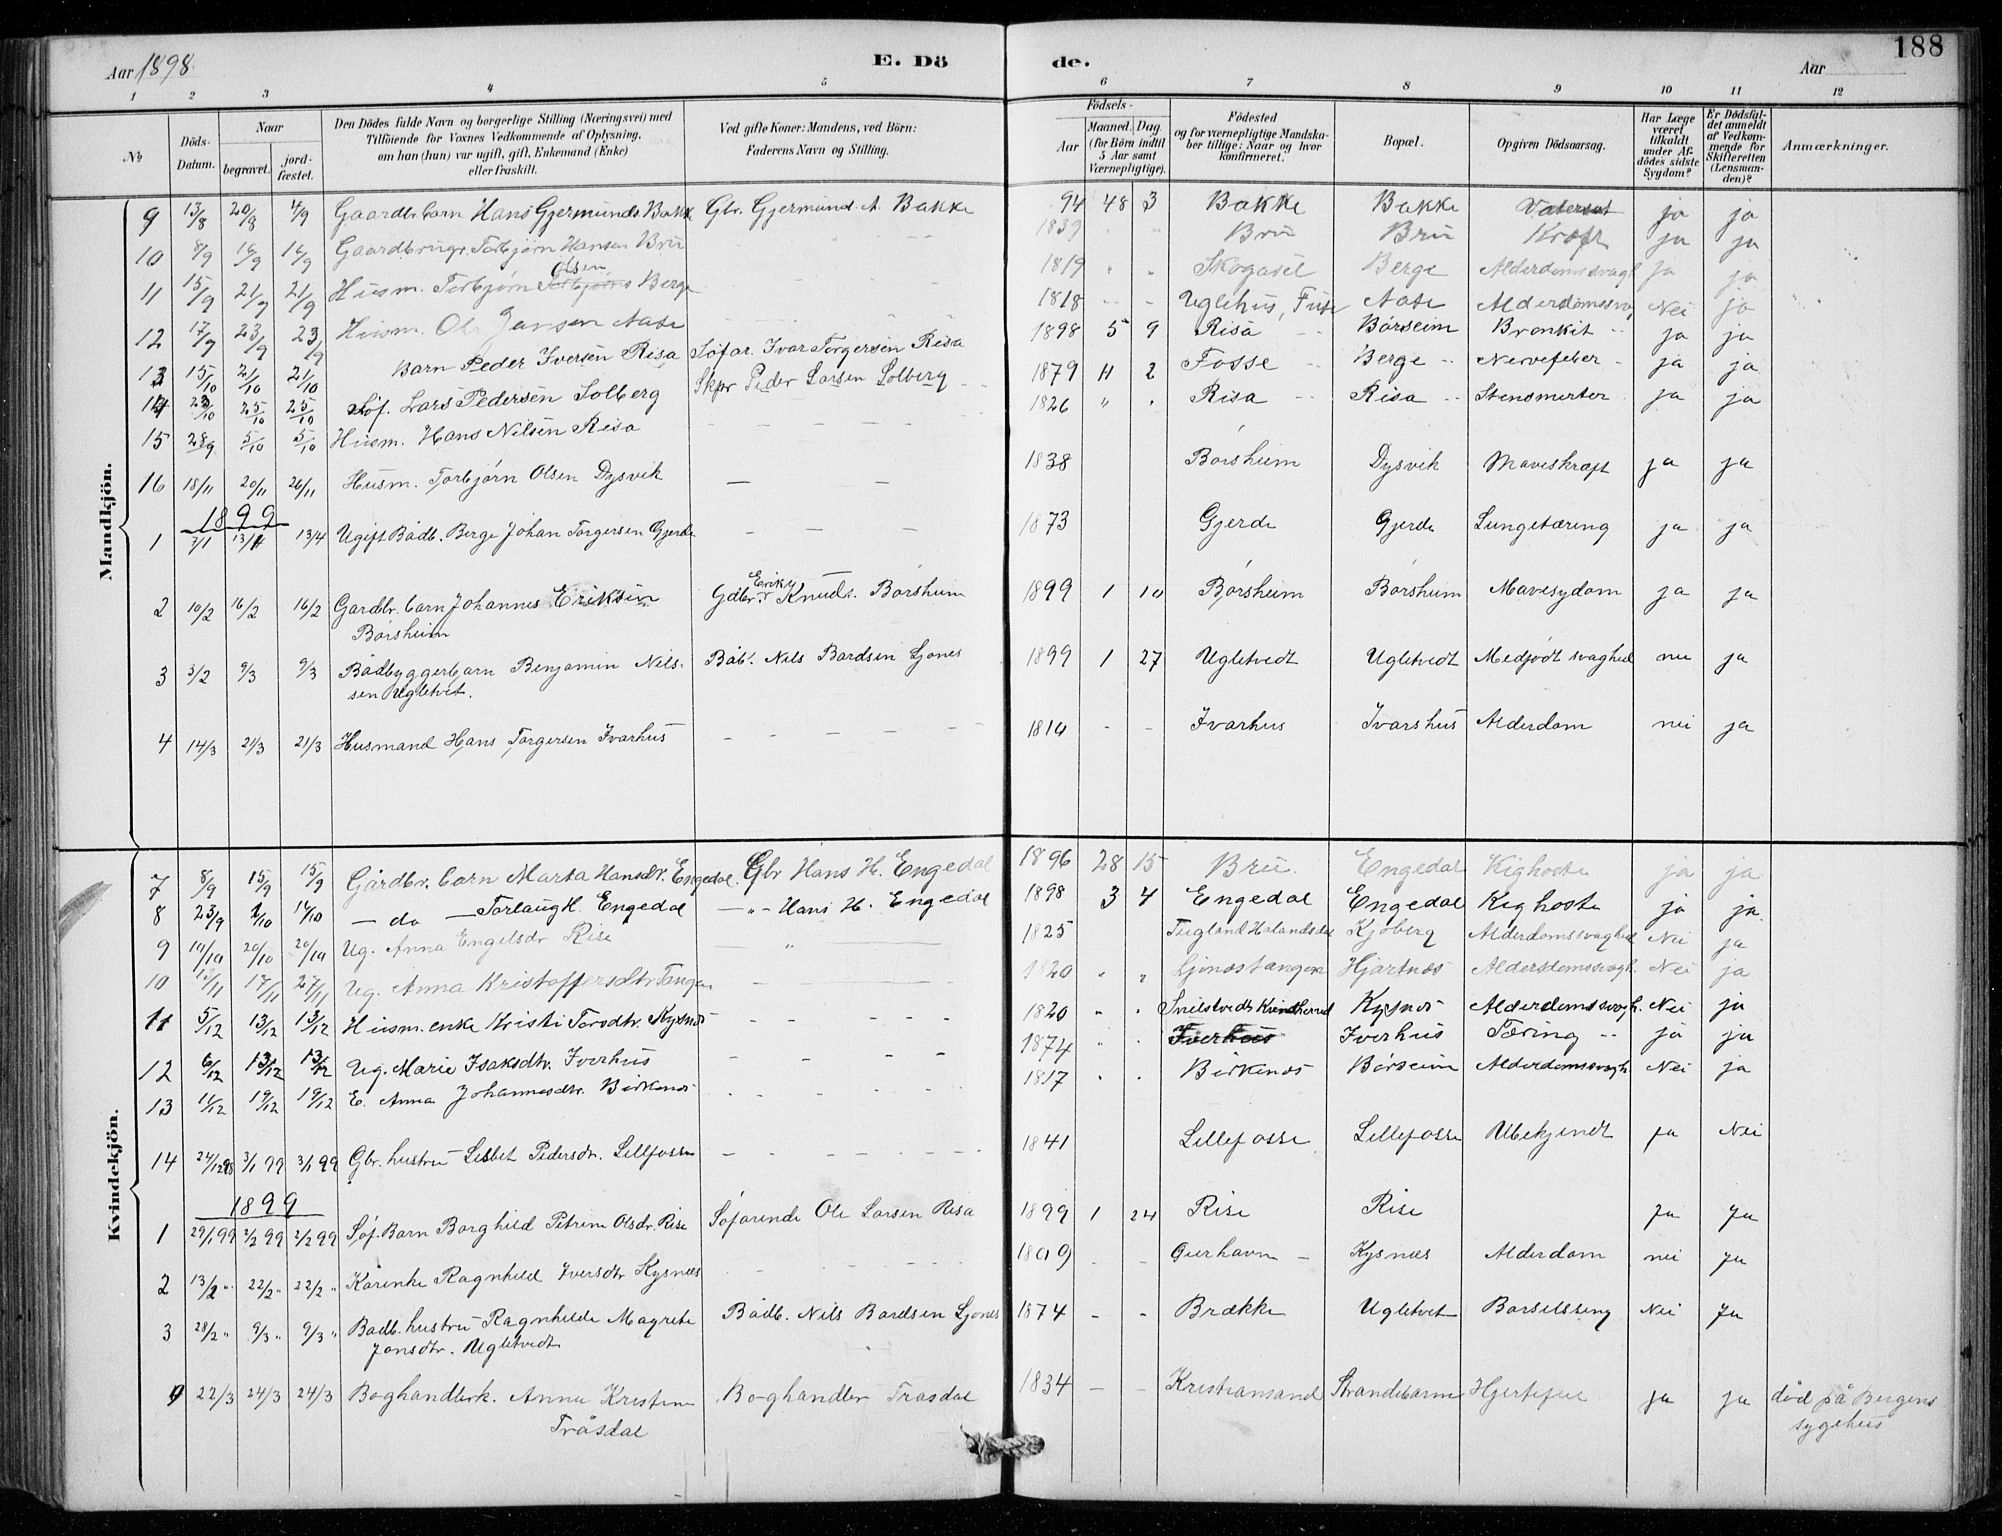 Aar 1898 E. Döde. Aar 188
1 2 3 4 5 6 7 8 9 10 11 12
№ Döds-Datum. Naar begravet. jordfæstet. Den Dödes fulde Navn og borgerlige Stilling (Næringsvei) med Tilföiende for Voxnes Vedkommende af Oplysning, om han (hun) var ugift, gift, Enkemand (Enke) eller fraskilt. Ved gifte Koner: Mandens, ved Börn: Faderens Navn og Stilling. Födsels- Aar Maaned. Dag (for Börn indtil 5 Aar samt Værnepligtige). Födested og for værnepligtige Mandskaber tillige: Naar og hvor konfirmeret. Bopæl. Opgiven Dödsaarsag. Har Læge været tilkaldt under Afdödes sidste Sygdom? Er Dödsfaldet anmeldt af Vedkommende for Skifteretten (Lensmanden)? Anmærkninger.
Mandkjön.
9 13/8 20/8 4/9 Gaardbr. barn Hans Gjermunds. Bakke Gbr. Gjermund A. Bakke 94 48 3 Bakke Bakke ja ja
10 8/9 14/9 14/9 Gaardbrugr Torbjørn Hansen Brü 1839 " " Brü Brü Kræft ja ja
11 15/9 21/9 21/9 Husm. Torbjørn Olsen Berge 1819 " " Skogasel Berge Alderdomssvagh ja ja
12 17/9 23/9 23/9 Husm. Ole Jansen Aase 1818 - - Uglehus, Fuse Aase Alderdomssv. Nei ja
13 15/10 21/10 21/10 Barn Peder Iversen Risa Søfar. Ivar Torgersen Risa 1898 5 9 Risa Børseim Bronkit ja ja
14 23/10 25/10 25/10 Søf. Lars Pedersen Solberg Skpr Peder Larsen Solberg 1879 11 2 Fosse Berge Nervefeber ja ja
15 28/9 5/10 5/10 Husm. Hans Nilsen Risa 1826 " " Risa Risa Stensmerter ja ja
16 18/11 20/11 26/11 Husm. Torbjørn Olsen Dysvik 1838 Børsheim Dysvik Mavekræft ja ja
1899
1 7/1 13/4 Ugift Bådb. Berge Johan Torgersen Gjerde 1873 Gjerde Gjerde Lungetæring ja ja
2 10/2 16/2 16/2 Gardbr. barn Johannes Eriksen Gdbr. Erik Knuds. Børsheim 1899 1 10 Børsheim Børsheim Mavesydom ja ja
Børsheim
3 3/2 9/3 9/3 Bådbyggerbarn Benjamin Nils- Båb. Nils Bardsen Ljones 1899 1 27 Ugletvedt Ugletvedt Medfødt svaghed nei ja
sen Ugletvet.
4 14/3 21/3 21/3 Husmand Hans Torgersen Ivarhus 1814 - - Ivarhus Ivarshus Alderdom nei ja
Kvindekjön.
7 8/9 15/9 15/9 Gårdbr. barn Marta Hansdr. Engedal. Gbr Hans H. Engedal 1896 28 15 Brü. Engedal Kighoste ja ja
8 23/9 2/10 14/10 — do — Torlaug H. Engedal — " - Hans H. Engedal 1898 3 4 Engedal Engedal Kighoste ja ja.
9 20/10 Ug. Anna Engelsdr Rise " 1825 Kjøberg Alderdomssvaghed Nei ja
10 17/11 27/11 Ug. Anna Kristoffersdtr Tangen 1820 " " Ljonestangen Hjartnes Alderdomssvagh. Nei ja
11 5/12 13/12 13/12 Husm. enke Kristi Torsdtr. Kysnes 1820 " " Kvindherred Kysnes Alderdomssvagh. Nei ja
12 6/12 13/12 13/12 Ug. Marie Isaksdtr. Iverhus 1874 " " Iverhus Iverhus Tæring ja ja
13 11/12 19/12 19/12 E. Anna Johannesdtr. Birkenes 1817 " " Birkenes Børseim Alderdomssvagh Nei ja
14 24/12 98 3/1 99 3/1 99 Gbr. hustru Lisbet Pedersdr. Lillefosse 1841 Lillefosse Lillefosse Ubekjendt ja Nei
1899
1 29/1 99 2/2 99 2/2 99 Søf. Barn Borghild Petrine Olsdr. Rise Søfarende Ole Larsen Risa 1899 1 24 Rise Rise ja ja
2 13/2 " 22/2 " 22/2 " Kårenke Ragnhild Iversdtr Kysnæs 1809 - - Kysnæs Alderdom nei ja
3 28/2 " 9/3 " 9/3 " Bådb. hustru Ragnhilde Magrete Bådb. Nils Bardsen Ljones 1874 - - Brække Ugletvet Barselsseng Nei Ja
Jonsdtr. Ugletvedt
22/3 24/3 24/3 Boghandlerk. Anna Kristine Boghandler Trasdal 1834 - - Kristiansand Strandebarm Hjertefeil ja ja død på Bergens
Tråsdal sygehus